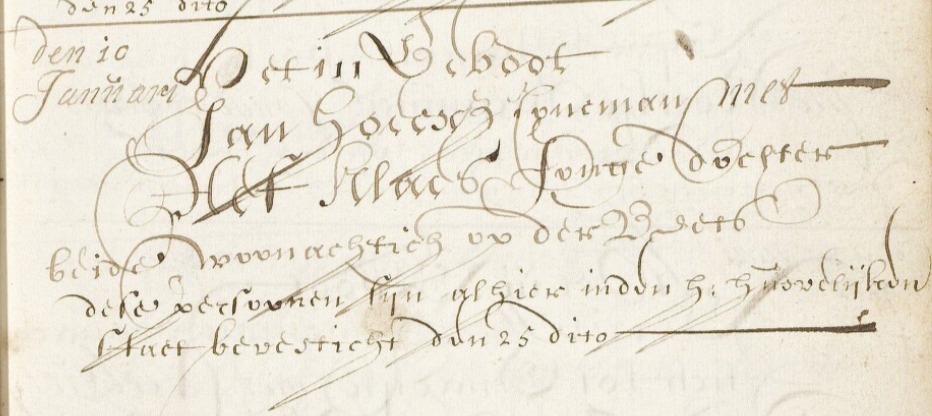 den 25 dito
den 10
Januari
Het in Gebodt
Jan Hoeesch speneman met
Aef Klaes Jonge dochter
beide woonachtich op der Veets
dese persoonen sijn alhier inden h. huwelijken
staet bevesticht den 25 dito